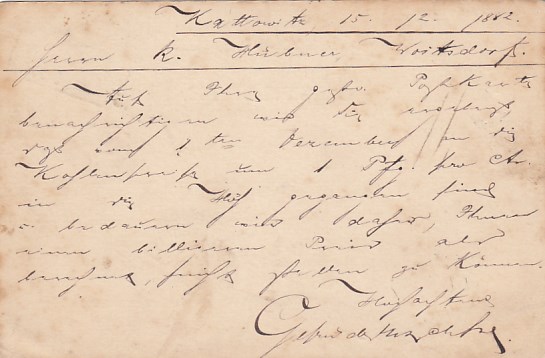 Kattowitz 15. 12. 1882.
Herrn K. Hübner Woitsdorf.
Auf Ihre gestr. Postkarte
benachrichtigen wir Sie ergebenst
daß vom 1ten Dezember an die
Kohlenpreise um 1 Pfg. pro Ctr.
in die Höh gegangen sind
u. bedauern wir daher, Ihnen
einen billigeren Preis als
berechnet, nicht stellen zu können.
Hochachtend
Gebrüder